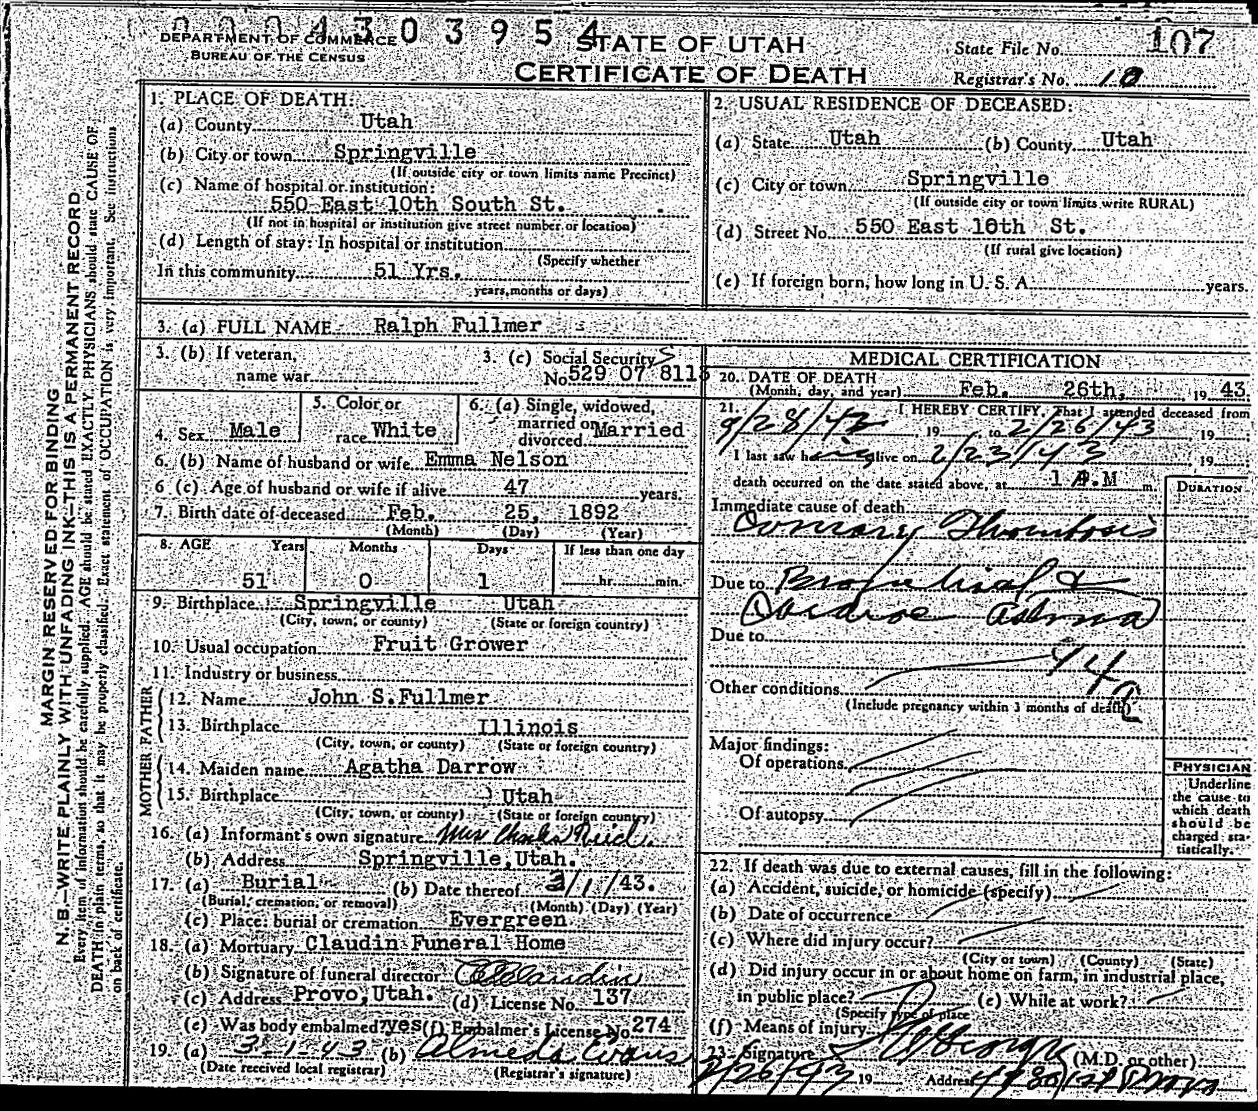 0004303954
DEPARTMENT OF COMMERCE
BUREAU OF THE CENSUS
STATE OF UTAH
CERTIFICATE OF DEATH
State File No. 107
Registrar's No. 10
MARGIN RESERVED FOR BINDING
N. B.—WRITE PLAINLY WITH UNFADING INK—THIS IS A PERMANENT RECORD
Every item of information should be carefully supplied. AGE should be stated EXACTLY. PHYSICIANS should state CAUSE OF
DEATH in plain terms, so that it may be properly classified. Exact statement of OCCUPATION is very important. See instructions
on back of certificate.
1. PLACE OF DEATH:
(a) County Utah
(b) City or town Springville
(If outside city or town limits name Precinct)
(c) Name of hospital or institution:
550 East 10th South St.
(If not in hospital or institution give street number or location)
(d) Length of stay: In hospital or institution
(Specify whether
In this community 51 Yrs.
years, months or days)
2. USUAL RESIDENCE OF DECEASED:
(a) State Utah (b) County Utah
(c) City or town Springville
(If outside city or town limits write RURAL)
(d) Street No. 550 East 10th St.
(If rural give location)
(e) If foreign born, how long in U. S. A. years.
3. (a) FULL NAME Ralph Fullmer
3. (b) If veteran,
name war
3. (c) Social Security
No. 529 07 8113
4. Sex Male
5. Color or
race White
6. (a) Single, widowed,
married or
divorced Married
6. (b) Name of husband or wife Emma Nelson
6 (c) Age of husband or wife if alive 47 years.
7. Birth date of deceased Feb. 25, 1892
(Month) (Day) (Year)
8. AGE Years Months Days If less than one day
51 0 1 hr. min.
9. Birthplace Springville Utah
(City, town, or county) (State or foreign country)
10. Usual occupation Fruit Grower
11. Industry or business
FATHER
12. Name John S. Fullmer
13. Birthplace Illinois
(City, town, or county) (State or foreign country)
MOTHER
14. Maiden name Agatha Darrow
15. Birthplace Utah
(City, town, or county) (State or foreign country)
16. (a) Informant's own signature Mrs Charles Reid.
(b) Address Springville, Utah.
17. (a) Burial (b) Date thereof 3/1/43.
(Burial, cremation, or removal) (Month) (Day) (Year)
(c) Place: burial or cremation Evergreen
18. (a) Mortuary Claudin Funeral Home
(b) Signature of funeral director Claudin
(c) Address Provo, Utah. (d) License No. 137
(e) Was body embalmed? yes (f) Embalmer's License No 274
19. (a) 3-1-43 (b) Almeda Evans
(Date received local registrar) (Registrar's signature)
MEDICAL CERTIFICATION
20. DATE OF DEATH
(Month, day, and year) Feb. 26th, 19 43.
21. I HEREBY CERTIFY, That I attended deceased from
9/28/42 19 , to 2/26/43 , 19
I last saw him alive on 2/23/43 , 19
death occurred on the date stated above, at 1 A.M m.
DURATION
Immediate cause of death
Coronary Thrombosis
Due to Bronchial &
Cardiac Astma
Due to
94
Other conditions
(Include pregnancy within 3 months of death)
Major findings:
Of operations
Of autopsy
PHYSICIAN
Underline
the cause to
which death
should be
charged sta-
tistically.
22. If death was due to external causes, fill in the following:
(a) Accident, suicide, or homicide (specify)
(b) Date of occurrence
(c) Where did injury occur?
(City or town) (County) (State)
(d) Did injury occur in or about home on farm, in industrial place,
in public place? (e) While at work?
(Specify type of place
(f) Means of injury
23. Signature (M.D. or other)
2/26/43 19 Address Provo